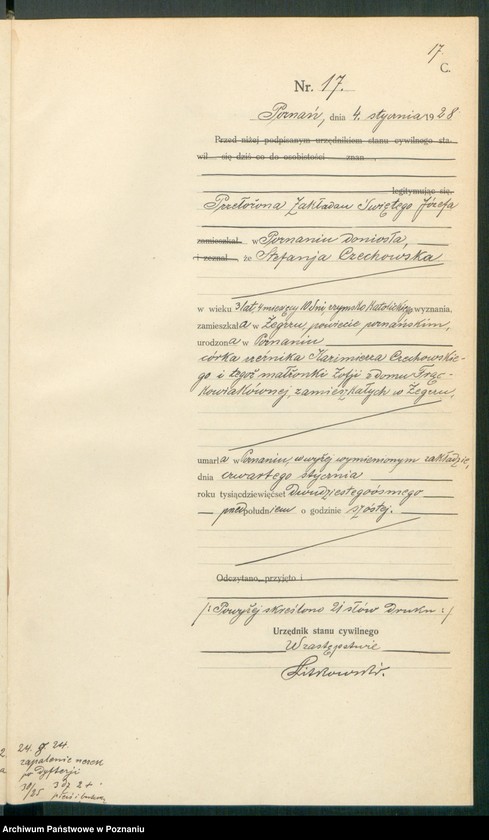 17.
C.
Nr. 17.
Poznań, dnia 4. stycznia 1928
Przed niżej podpisanym urzędnikiem stanu cywilnego sta-
wił się dziś co do osobistości znan
legitymując się,
Przełożona Zakładu Świętego Józefa
zamieszkał w Poznaniu doniosła,
i zeznał, że Stefanja Czechowska
w wieku 3 lat, 4 miesięcy 10 dni, rzymsko katolickiego wyznania,
zamieszkała w Żegrzu, powiecie poznańskim,
urodzona w Poznaniu
córka rzeźnika Kazimierza Czechowskie-
go i tegoż małżonki Zofji z domu Frąc-
kowiakównej, zamieszkałych w Żegrzu,
umarła w Poznaniu, w wyżej wymienionym zakładzie,
dnia czwartego stycznia
roku tysiącdziewięćset dwudziestegoósmego
przed południem o godzinie szóstej.
Odczytano, przyjęto i
/: Powyżej skreślono 21 słów druku :/
Urzędnik stanu cywilnego
W zastępstwie
24. 9 24.
zapalenie nerek
po dyfterji
30/25 307 2+
Archiwum Państwowe w Poznaniu